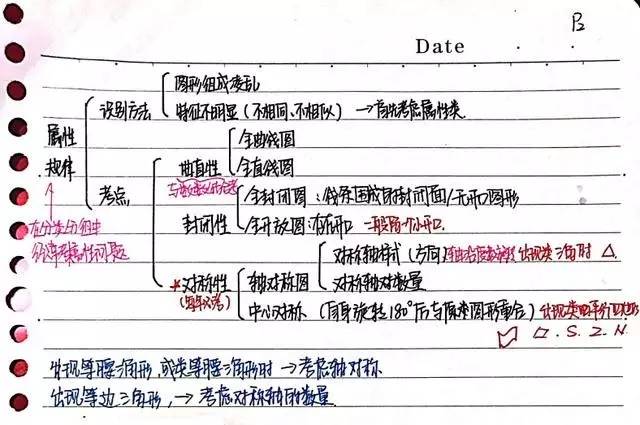 P2
Date
图形组成凌乱
识别方法
特征不明显(不相同、不相似) → 首先考虑属性类
属性
规律
全曲线图
曲直性
全直线图
考点
全封闭图:线条围成的封闭面/无开口图形
封闭性
全开放图:有开口 一般留一个小开口
在分类分组中
经常考属性问题
对称轴样式(方向) 出现类三角时 △
轴对称图
对称轴对数量
*对称性
(每年必考)
中心对称(自身旋转180°后与原来图形重合) 出现类平行四边形
▱.S.Z.N.
出现等腰三角形,或类等腰三角形时 → 考虑轴对称
出现等边三角形, → 考虑对称轴的数量